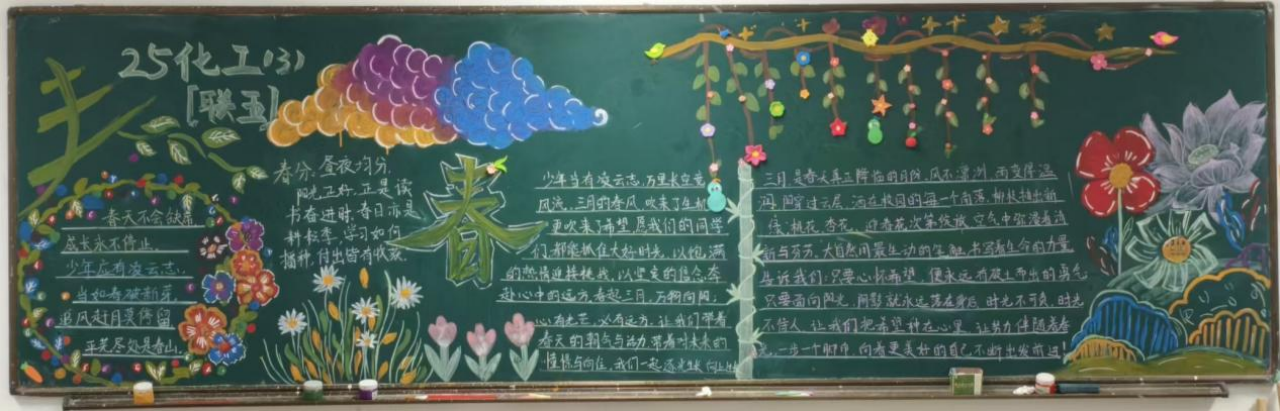 25化工(3)
[联五]
春天不会缺席
成长永不停止
少年应有凌云志
当如春破新芽
追风赶月莫停留
平芜尽处是春山
春分,昼夜均分,
阳光正好,正是读
书奋进时,春日亦是
耕牧季,学习如何
播种,付出皆有收获
春
少年当有凌云志,万里长空竞
风流,三月的春风吹来了生机
更吹来了希望愿我们的同学
们,都能抓住大好时光,以饱满
的热情迎接挑战,以坚定的信念奔
赴心中的远方,春起三月,万物向阳,
心有光芒,必有远方,让我们带着
春天的朝气与活力,带着对未来的
憧憬与向往,我们一起逐光
三月是春天真正降临的日段,风不凛冽,雨变得温
润,阳穿过云层,洒在校园的每一个角落,柳枝抽出新
桃花、杏花、迎春花次第绽放,空气中弥漫着
芬芳,大自然用最生动的笔触,书写着生命的力量
告诉我们,只要心怀希望,便永远有破土而出的勇气
只要面向阳光,阴影就永远落在身后,时光不可负,时光
不待人,让我们把希望种在心里,让努力伴随青春
一步一个脚印,向着更美好的自己,不断出发前进!